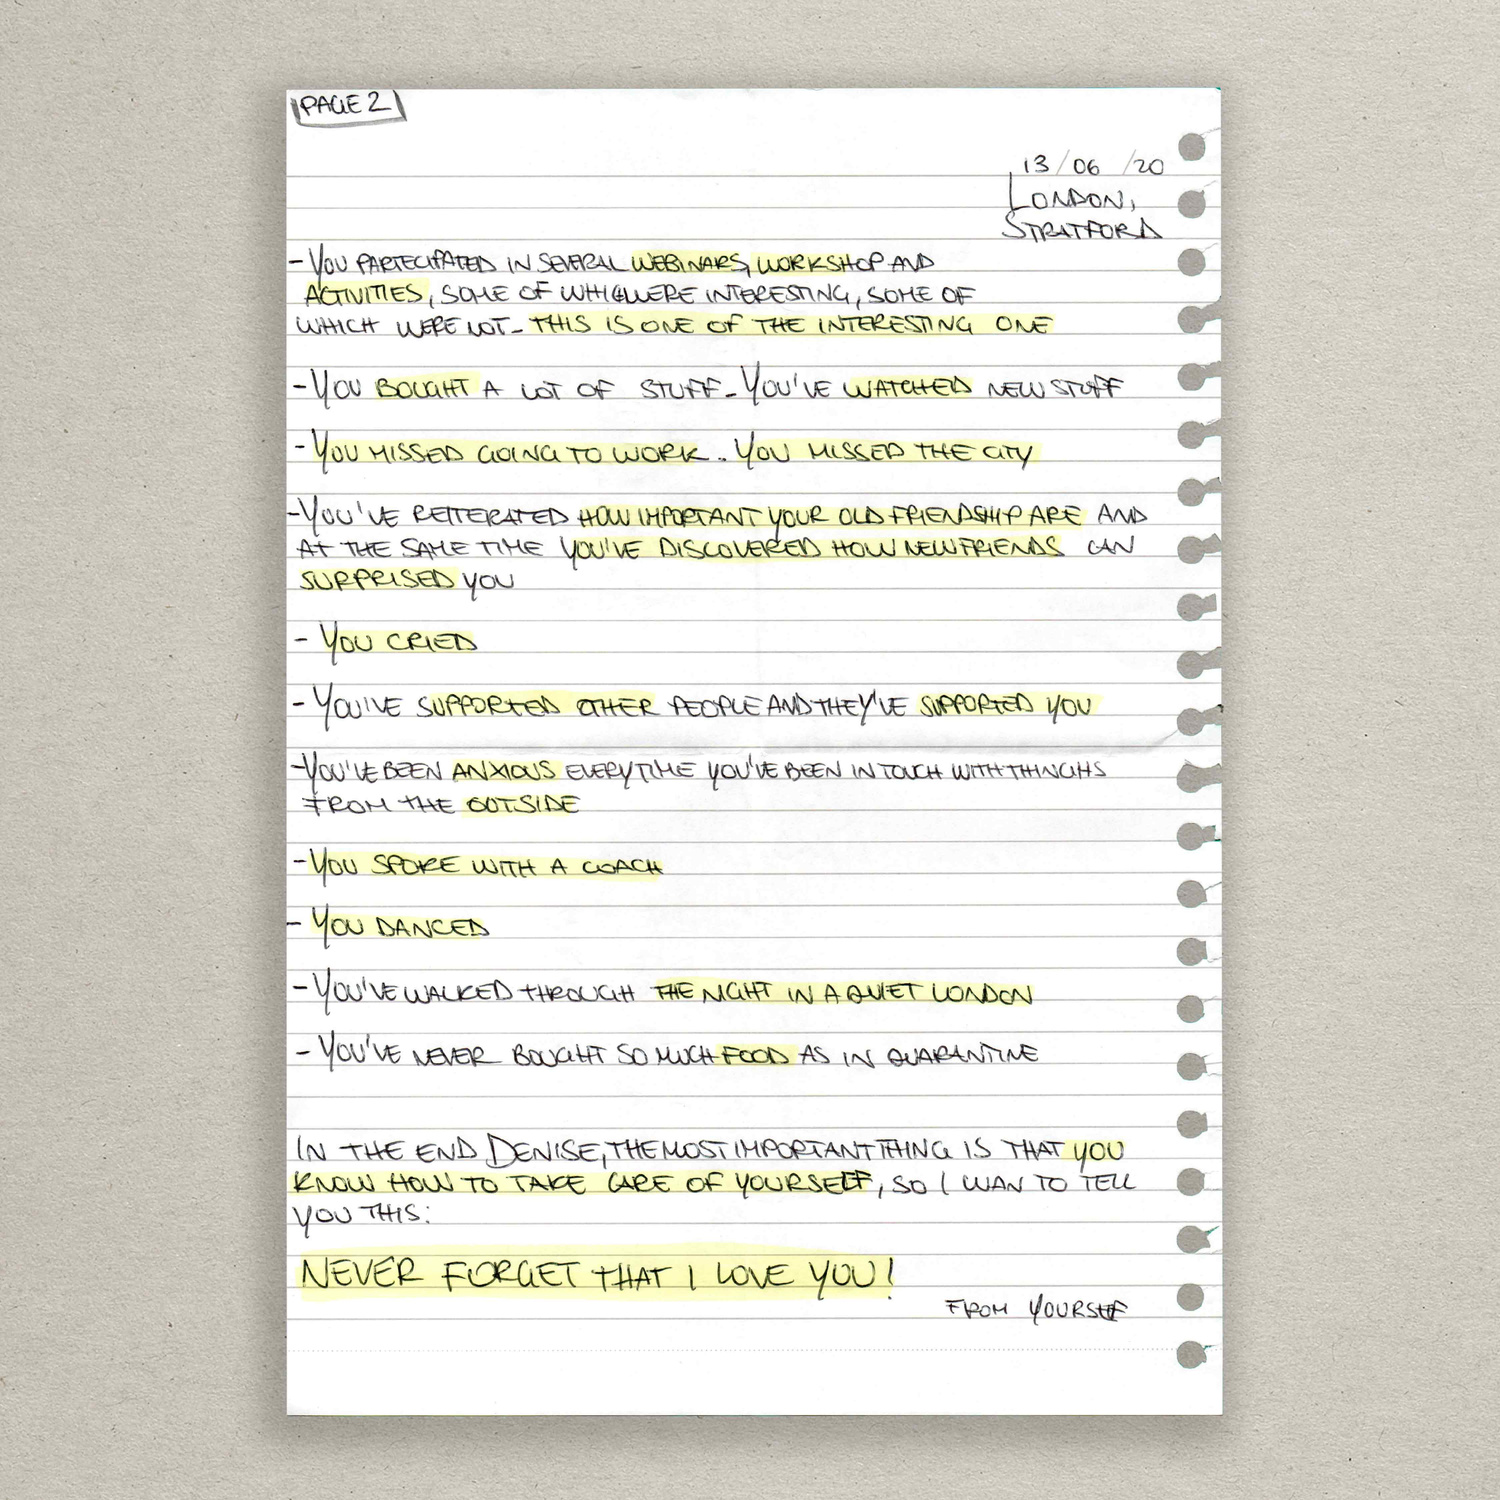 PAGE 2
13/06/20
LONDON,
STRATFORD
- YOU PARTECIPATED IN SEVERAL WEBINARS, WORKSHOP AND
ACTIVITIES, SOME OF WHICH WERE INTERESTING, SOME OF
WHICH WERE NOT - THIS IS ONE OF THE INTERESTING ONE
- YOU BOUGHT A LOT OF STUFF - YOU'VE WATCHED NEW STUFF
- YOU MISSED GOING TO WORK .. YOU MISSED THE CITY
- YOU'VE REITERATED HOW IMPORTANT YOUR OLD FRIENDSHIP ARE AND
AT THE SAME TIME YOU'VE DISCOVERED HOW NEW FRIENDS CAN
SURPRISED YOU
- YOU CRIED
- YOU'VE SUPPORTED OTHER PEOPLE AND THEY'VE SUPPORTED YOU
- YOU'VE BEEN ANXIOUS EVERYTIME YOU'VE BEEN IN TOUCH WITH THINGHS
FROM THE OUTSIDE
- YOU SPOKE WITH A COACH
- YOU DANCED
- YOU'VE WALKED THROUGH THE NIGHT IN A QUIET LONDON
- YOU'VE NEVER BOUGHT SO MUCH FOOD AS IN QUARANTINE
IN THE END DENISE, THE MOST IMPORTANT THING IS THAT YOU
KNOW HOW TO TAKE CARE OF YOURSELF, SO I WAN TO TELL
YOU THIS:
NEVER FORGET THAT I LOVE YOU!
FROM YOURSELF